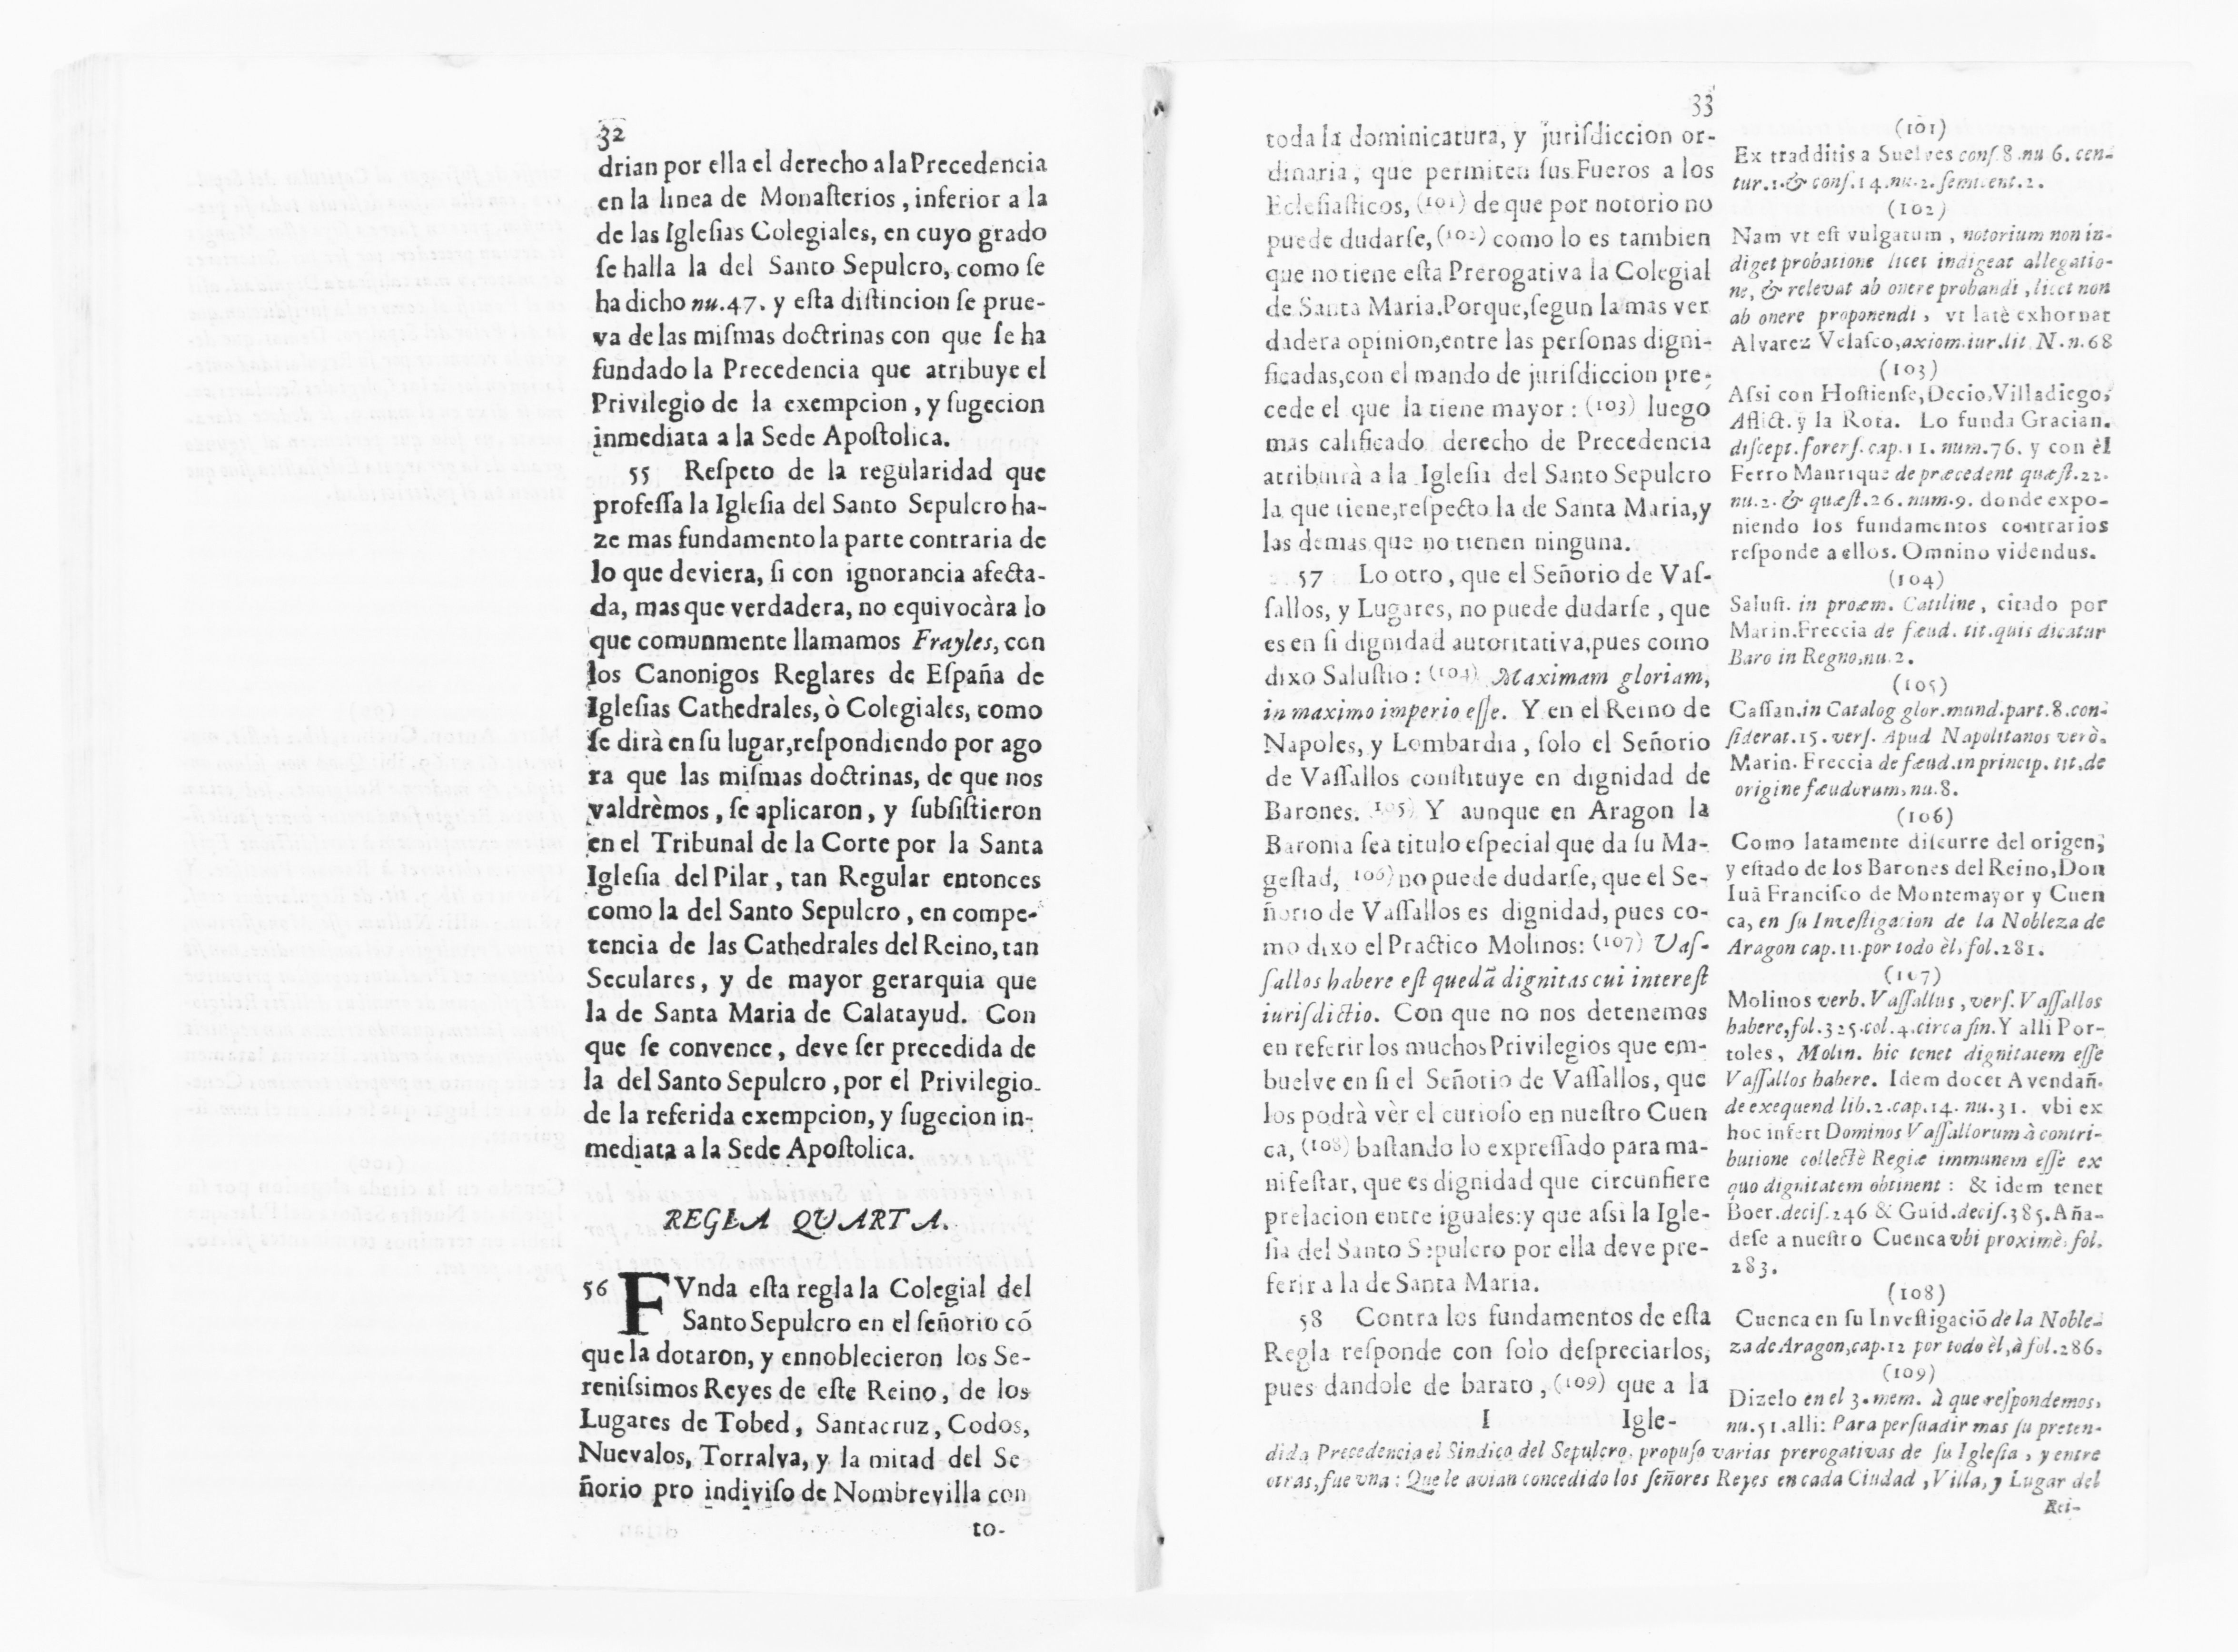 32
drian por ella el derecho a la Precedencia
en la linea de Monaſterios, inferior a la
de las Igleſias Colegiales, en cuyo grado
ſe halla la del Santo Sepulcro, como ſe
ha dicho nu.47. y eſta diſtincion ſe prue-
va de las miſmas doctrinas con que ſe ha
fundado la Precedencia que atribuye el
Privilegio de la exempcion, y ſugecion
inmediata a la Sede Apoſtolica.
55 Reſpeto de la regularidad que
profeſſa la Igleſia del Santo Sepulcro ha-
ze mas fundamento la parte contraria de
lo que deviera, ſi con ignorancia afecta-
da, mas que verdadera, no equivocàra lo
que comunmente llamamos Frayles, con
los Canonigos Reglares de Eſpaña de
Igleſias Cathedrales, ò Colegiales, como
ſe dirà en ſu lugar, reſpondiendo por ago
ra que las miſmas doctrinas, de que nos
valdrèmos, ſe aplicaron, y ſubſiſtieron
en el Tribunal de la Corte por la Santa
Igleſia del Pilar, tan Regular entonces
como la del Santo Sepulcro, en compe-
tencia de las Cathedrales del Reino, tan
Seculares, y de mayor gerarquia que
la de Santa Maria de Calatayud. Con
que ſe convence, deve ſer precedida de
la del Santo Sepulcro, por el Privilegio
de la referida exempcion, y ſugecion in-
mediata a la Sede Apoſtolica.
REGLA QUARTA.
56 FVnda eſta regla la Colegial del
Santo Sepulcro en el ſeñorio cõ
que la dotaron, y ennoblecieron los Se-
reniſsimos Reyes de eſte Reino, de los
Lugares de Tobed, Santacruz, Codos,
Nuevalos, Torralva, y la mitad del Se
ñorio pro indiviſo de Nombrevilla con
to-
33
toda la dominicatura, y juriſdiccion or-
dinaria, que permiten ſus Fueros a los
Ecleſiaſticos, (101) de que por notorio no
puede dudarſe, (102) como lo es tambien
que no tiene eſta Prerogativa la Colegial
de Santa Maria. Porque, ſegun la mas ver
dadera opinion, entre las perſonas digni-
ficadas, con el mando de juriſdiccion pre-
cede el que la tiene mayor: (103) luego
mas calificado derecho de Precedencia
atribuirà a la Igleſia del Santo Sepulcro
la que tiene, reſpecto la de Santa Maria, y
las demas que no tienen ninguna.
57 Lo otro, que el Señorio de Vaſ-
ſallos, y Lugares, no puede dudarſe, que
es en ſi dignidad autoritativa, pues como
dixo Saluſtio: (104) Maximam gloriam,
in maximo imperio eſſe. Y en el Reino de
Napoles, y Lombardia, ſolo el Señorio
de Vaſſallos conſtituye en dignidad de
Barones. (105) Y aunque en Aragon la
Baronia ſea titulo eſpecial que da ſu Ma-
geſtad, 106) no puede dudarſe, que el Se-
ñorio de Vaſſallos es dignidad, pues co-
mo dixo el Practico Molinos: (107) Vaſ-
ſallos habere eſt quedã dignitas cui intereſt
iuriſdictio. Con que no nos detenemos
en referir los muchos Privilegios que em-
buelve en ſi el Señorio de Vaſſallos, que
los podrà vèr el curioſo en nueſtro Cuen
ca, (108) baſtando lo expreſſado para ma-
nifeſtar, que es dignidad que circunfiere
prelacion entre iguales: y que aſsi la Igle-
ſia del Santo Sepulcro por ella deve pre-
ferir a la de Santa Maria.
58 Contra los fundamentos de eſta
Regla reſponde con ſolo deſpreciarlos,
pues dandole de barato, (109) que a la
I Igle-
(101)
Ex tradditis a Suelves conſ.8.nu 6. cen-
tur.1.& conſ.14.nu.2. ſemicent.2.
(102)
Nam vt eſt vulgatum, notorium non in-
diget probatione licet indigeat allegatio-
ne, & relevat ab onere probandi, licet non
ab onere proponendi, vt latè exhornat
Alvarez Velaſco, axiom.iur.lit N.n.68
(103)
Aſsi con Hoſtienſe, Decio, Villadiego,
Aflict. y la Rota. Lo funda Gracian.
diſcept. forenſ. cap.11. num.76. y con èl
Ferro Manrique de præcedent quæſt.22.
nu.2. & quæſt.26. num.9. donde expo-
niendo los fundamentos contrarios
reſponde a ellos. Omnino videndus.
(104)
Saluſt. in proæm. Catiline, citado por
Marin. Freccia de fæud. tit.quis dicatur
Baro in Regno, nu.2.
(105)
Caſſan. in Catalog glor.mund.part.8.con-
ſiderat.15. verſ. Apud Napolitanos verò.
Marin. Freccia de fæud.in princip. tit.de
origine fæudorum, nu.8.
(106)
Como latamente diſcurre del origen,
y eſtado de los Barones del Reino, Don
Iuã Franciſco de Montemayor y Cuen
ca, en ſu Inveſtigacion de la Nobleza de
Aragon cap.11. por todo èl, fol.281.
(107)
Molinos verb. Vaſſallus, verſ. Vaſſallos
habere, fol.325.col.4.circa fin. Y alli Por-
toles, Molin. hic tenet dignitatem eſſe
Vaſſallos habere. Idem docet Avendañ.
de exequend lib.2.cap.14. nu.31. vbi ex
hoc infert Dominos Vaſſallorum à contri-
butione collectè Regiæ immunem eſſe ex
quo dignitatem obtinent: & idem tenet
Boer.deciſ.246 & Guid.deciſ.385. Aña-
deſe a nueſtro Cuenca vbi proximè, fol.
283.
(108)
Cuenca en ſu Inveſtigaciõ de la Noble-
za de Aragon, cap.12 por todo èl, à fol.286.
(109)
Dizelo en el 3. mem. à que reſpondemos,
nu.51. alli: Para perſuadir mas ſu preten-
dida Precedencia el Sindico del Sepulcro, propuſo varias prerogativas de ſu Igleſia, y entre
otras, fue vna: Que le avian concedido los ſeñores Reyes en cada Ciudad, Villa, y Lugar del
Rei-